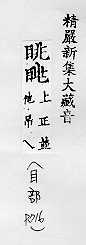 精嚴新集大藏音
眺䀠上正並
他吊人
(目部
P016)